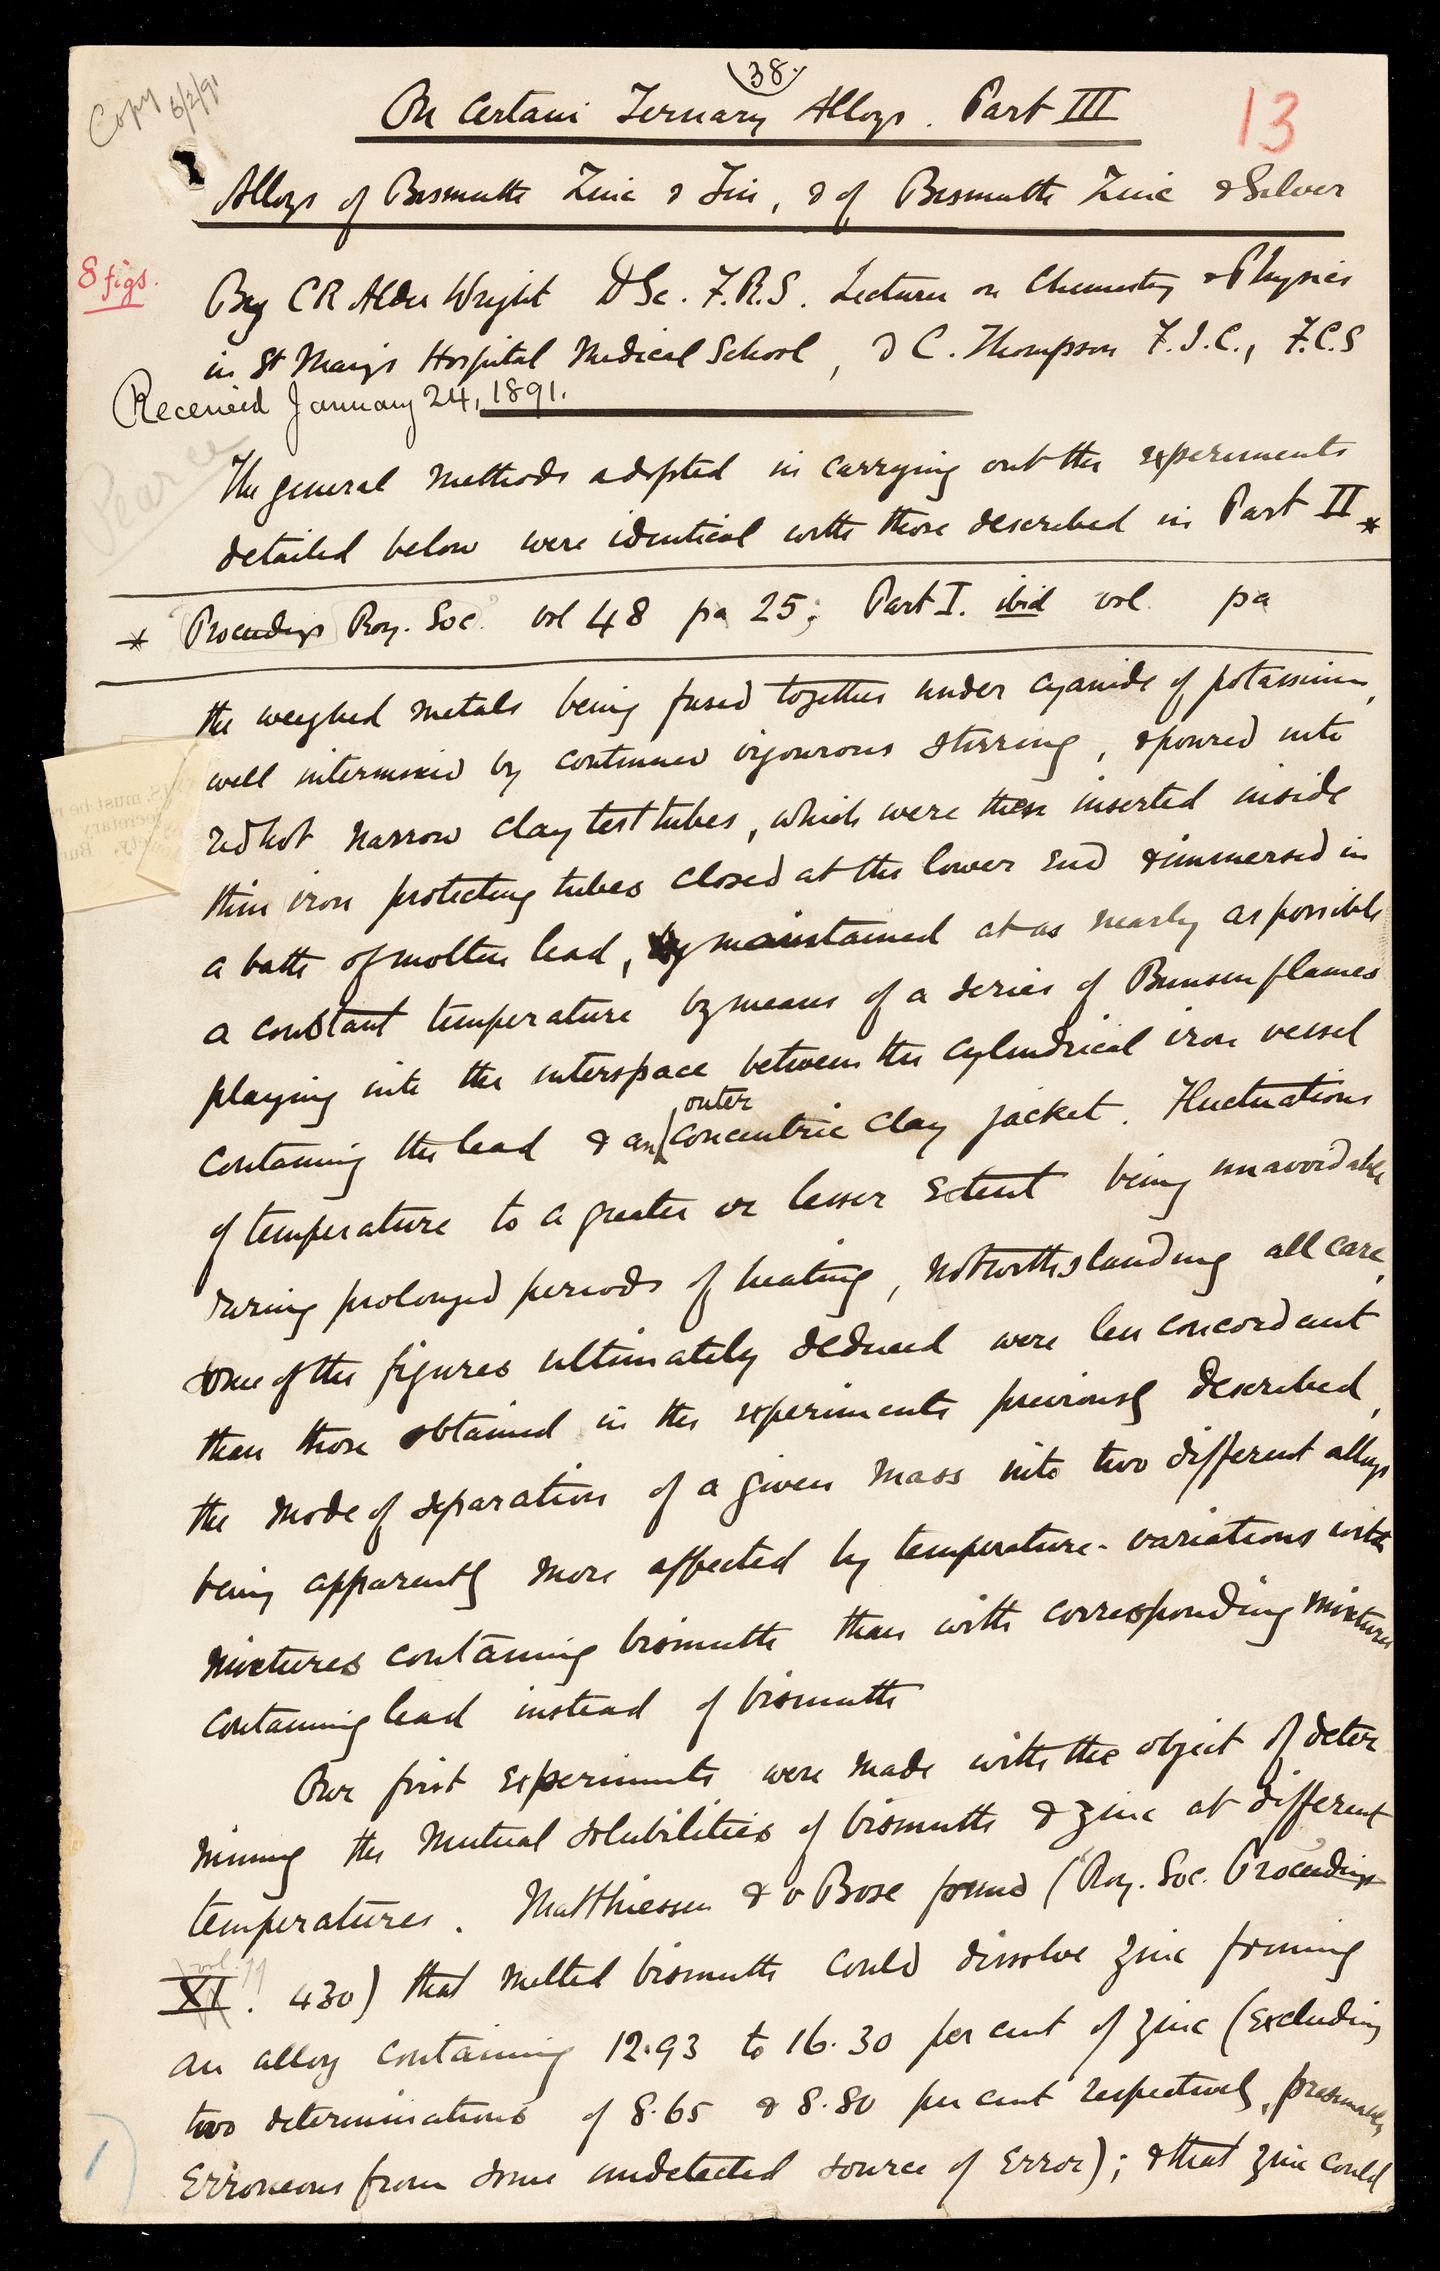 38.
Copy 5/2/91
On Certain Ternary Alloys. Part III
13
Alloys of Bismuth Zinc & Tin, & of Bismuth Zinc & Silver
8 figs.
By C R Alder Wright DSc. F.R.S. Lecturer on Chemistry & Physics
in St Mary's Hospital Medical School, & C. Thompson F.I.C., F.C.S
Received January 24, 1891.
Pearce
The general methods adopted in carrying out the experiments
detailed below were identical with those described in Part II *
* 'Proceedings Roy. Soc.' vol 48 pa 25; Part I. ibid vol pa
the weighed metals being fused together under cyanide of potassium,
well intermixed by continued vigourous stirring, & poured into
redhot narrow clay test tubes, which were then inserted inside
thin iron protecting tubes closed at the lower end & immersed in
a bath of molten lead, maintained at as nearly as possible
a constant temperature by means of a series of Bunsen flames
playing into the interspace between the cylindrical iron vessel
outer
containing the lead & an concentric clay jacket. Fluctuations
of temperature to a greater or lesser extent being unavoidable
during prolonged periods of heating, notwithstanding all care,
some of the figures ultimately deduced were less concordant
than those obtained in the experiments previously described,
the mode of separation of a given mass into two different alloys
being apparently more affected by temperature-variations with
mixtures containing bismuth than with corresponding mixtures
containing lead instead of bismuth
Our first experiments were made with the object of deter
mining the mutual solubilities of bismuth & zinc at different
temperatures. Matthiessen & v Bose found ('Roy. Soc. Proceedings'
vol. 11
XI. 430) that melted bismuth could dissolve zinc forming
an alloy containing 12.93 to 16.30 per cent of zinc (excluding
two determinations of 8.65 & 8.80 per cent respectively, presumably
erroneous from some undetected source of error); & that zinc could
1)